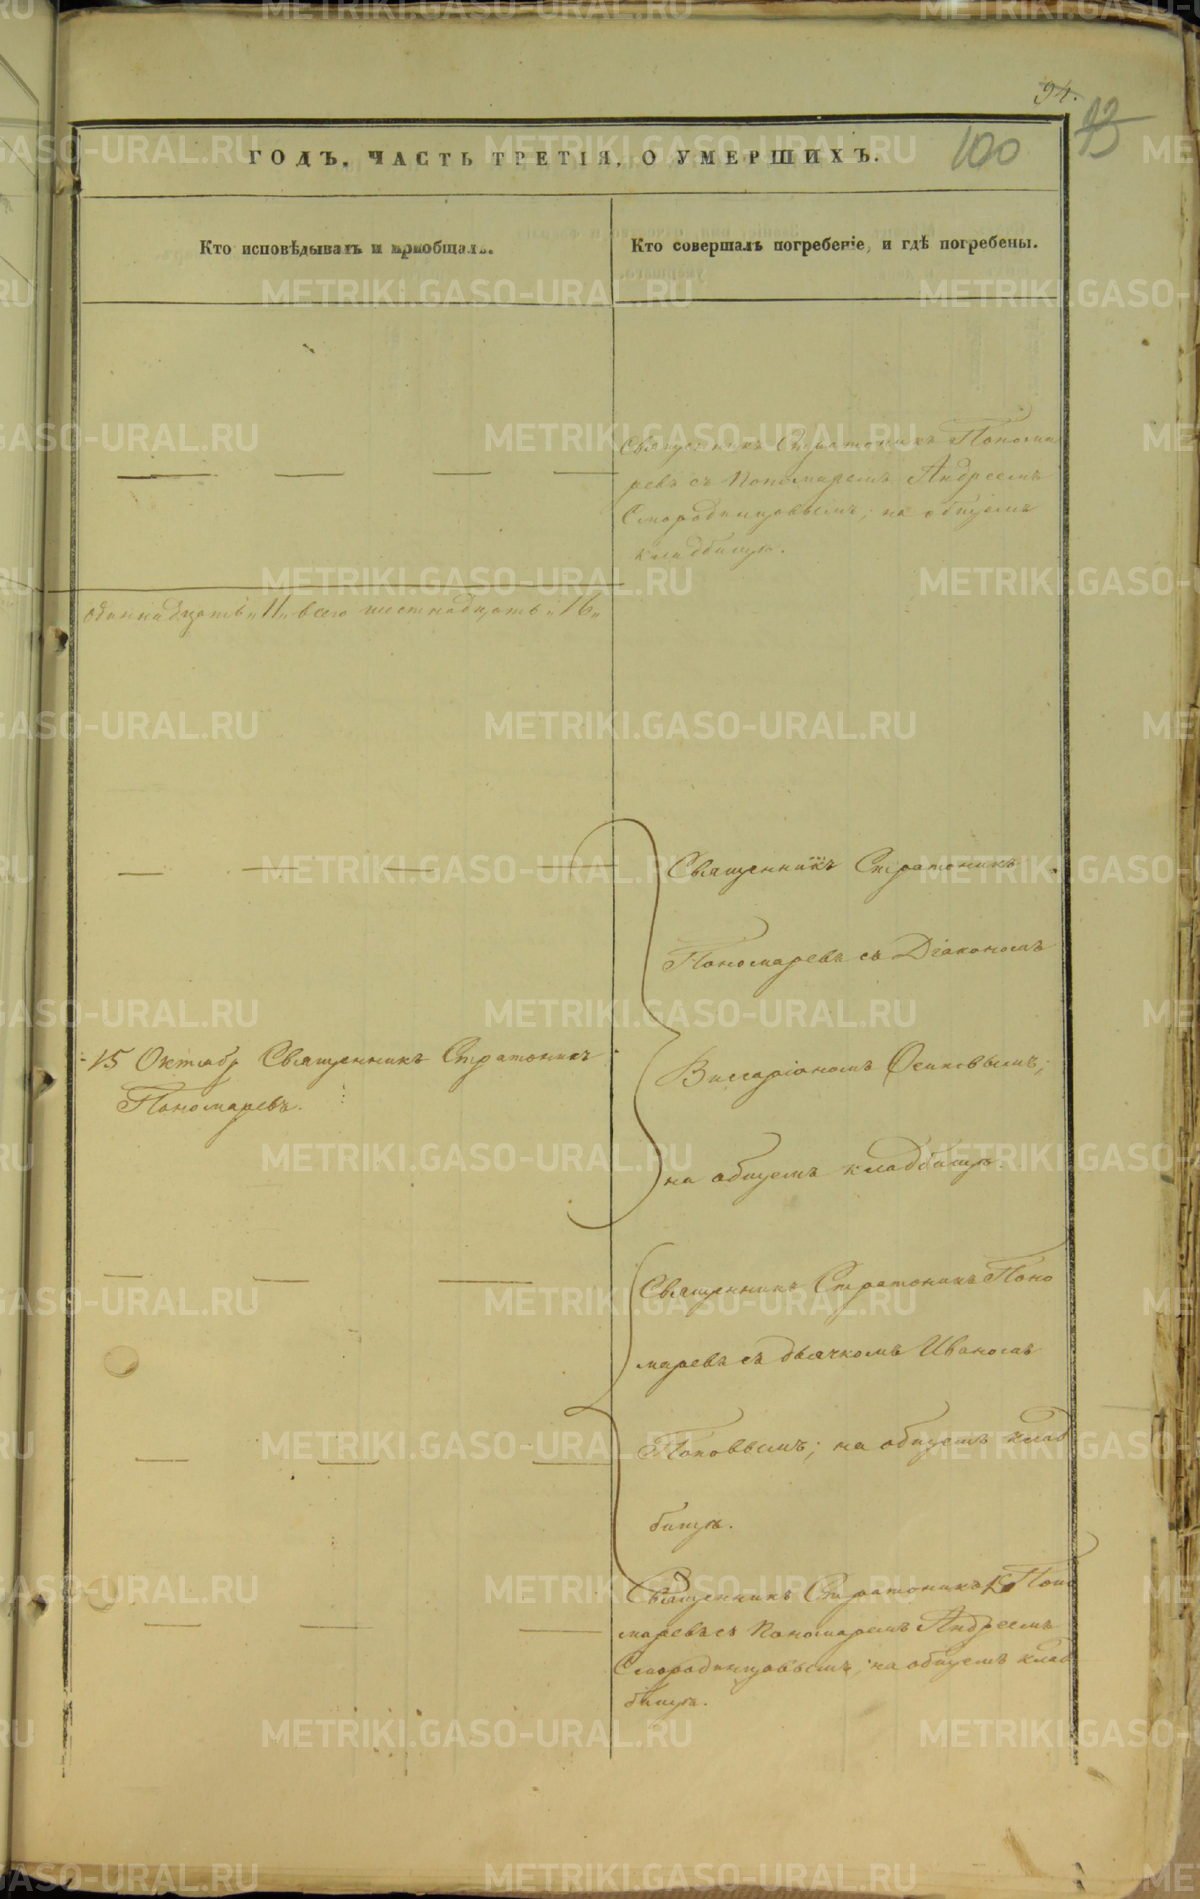 94.
93
100
ГОДЪ, ЧАСТЬ ТРЕТІЯ, О УМЕРШИХЪ.
Кто исповѣдывалъ и пріобщалъ.
Кто совершалъ погребеніе, и гдѣ погребены.
Священникъ Стратоникъ Понома
ревъ съ Пономаремъ Андреемъ
Смородинцовымъ; на общемъ
кладбищѣ.
одиннадцать „11„ всего шестнадцать „16„
Священникъ Стратоникъ
Пономаревъ съ Діакономъ
Виссаріономъ Осиповымъ;
на общемъ кладбищѣ.
15 Октябр Священникъ Стратоникъ
Пономаревъ.
Священникъ Стратоникъ Поно
маревъ съ дьячкомъ Иваномъ
Поповымъ; на общемъ клад
бищѣ.
Священникъ Стратоникъ Поно
маревъ съ Пономаремъ Андреемъ
Смородинцовымъ; на общемъ клад
бищѣ.
METRIKI.GASO-URAL.RU